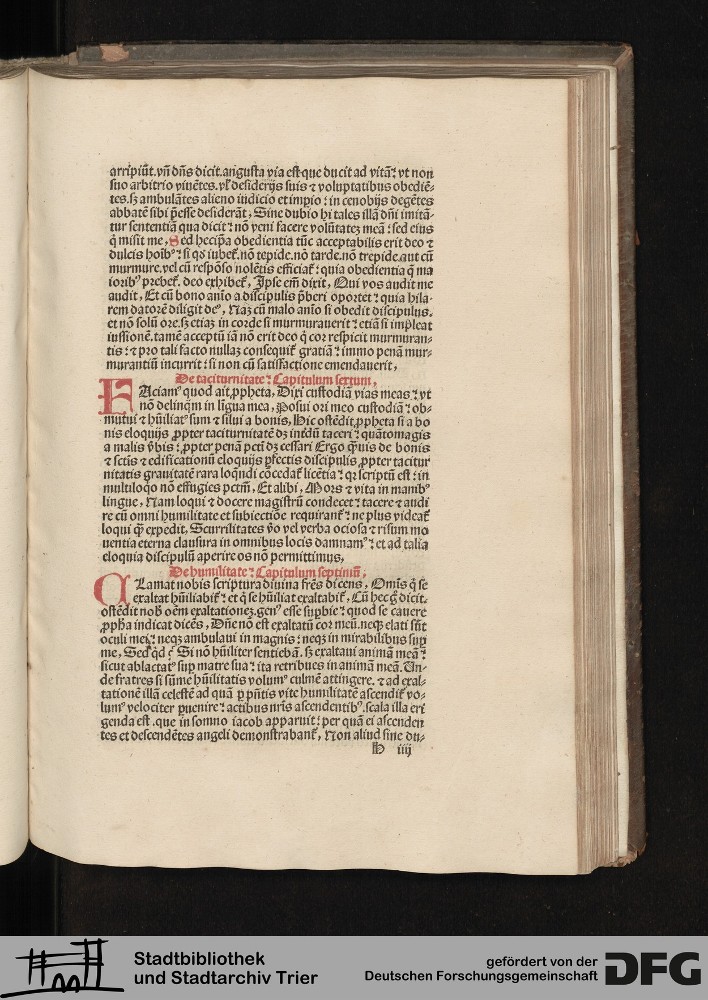 arripiūt. vn̄ dn̄s dicit. angusta via est que ducit ad vitā: vt non
suo arbitrio viuētes. vl̓ desiderijs suis ⁊ voluptatibus obediē-
tes. sꝫ ambulātes alieno iudicio et impio: in cenobijs degētes
abbatē sibi p̄esse desiderāt, Sine dubio hi tales illā dn̄i imitā-
tur sententiā qua dicit: nō veni facere volūtatez meā: sed eius
q̇ misit me, Sed hec ip̄a obedientia tūc acceptabilis erit deo ⁊
dulcis hoībꝰ: si qd̓ iubet̉. nō tepide. nō tarde. nō trepide. aut cū
murmure. vel cū respōso nolētis efficiat̉: quia obedientia q̄ ma
ioribꝰ prebet̉. deo exhibet̉, Ipse em̄ dixit, Qui vos audit me
audit, Et cū bono aīo a discipulis p̄beri oportet: quia hila-
rem datorē diligit deꝰ, Naꝫ cū malo anīo si obedit discipulus.
et nō solū ore. sꝫ etiaꝫ in corde si murmurauerit: etiā si impleat
iussionē. tamē acceptū iā nō erit deo q̇ cor respicit murmuran-
tis: ⁊ pro tali facto nullaꝫ consequit̉ gratiā: immo penā mur-
murantiū incurrit: si non cū satisfactione emendauerit,
De taciturnitate: Capitulum sextum,
FAciamꝰ quod ait ꝓpheta, Dixi custodiā vias meas: vt
nō delinq̄m in līgua mea, Posui ori meo custodiā: ob-
mutui ⁊ hūiliatꝰ sum ⁊ silui a bonis, Hic ostēdit ꝓpheta si a bo
nis eloquijs ꝓpter taciturnitatē dꝫ intdū taceri: quātomagis
a malis v̓bis: ꝓpter penā pctī dꝫ cessari Ergo q̄uis de bonis
⁊ sctīs ⁊ edificationū eloquijs ꝑfectis discipulis ꝓpter tacitur
nitatis grauitatē rara loq̄ndi cōcedat̉ licētia: qr scriptū est: in
multiloq̇o nō effugies pctm̄, Et alibi, Mors ⁊ vita in manibꝰ
lingue, Nam loqui ⁊ docere magistrū condecet: tacere ⁊ audi
re cū omni humilitate et subiectiōe requirant̉: ne plus videat̉
loqui q̄ꝫ expedit, Scurrilitates v̓o vel verba ociosa ⁊ risum mo
uentia eterna clausura in omnibus locis damnamꝰ: et ad talia
eloquia discipulū aperire os nō permittimus,
De humilitate: Capitulum septimū,
CLamat nobis scriptura diuina frēs dicens, Omīs q̇ se
exaltat hūiliabit̉: et q̇ se hūiliat exaltabit̉, Cū hec g̊ dicit.
ostēdit nob̓ oēm exaltationeꝫ. genꝰ esse suꝑbie: quod se cauere
ꝓph̄a indicat dicēs, Dn̄e nō est exaltatū cor meū. neqꝫ elati sūt
oculi mei: neqꝫ ambulaui in magnis: neqꝫ in mirabilibus suꝑ
me, Sed qd̓ ē Si nō hūiliter sentiebā. sꝫ exaltaui animā meā:
sicut ablactatꝰ suꝑ matre sua: ita retribues in animā meā. Un-
de fratres si sūme hūilitatis volumꝰ culmē attingere. ⁊ ad exal-
tationē illā celestē ad quā ꝑ p̄ntis vite humilitatē ascendit̉ vo-
lumꝰ velociter ꝑuenire: actibus nr̄is ascendentibꝰ. scala illa eri
genda est. que in somno iacob apparuit: per quā ei ascenden
tes et descendētes angeli demonstrabant̉, Non aliud sine du-
H iiij
Stadtbibliothek
und Stadtarchiv Trier
gefördert von der
Deutschen Forschungsgemeinschaft
DFG